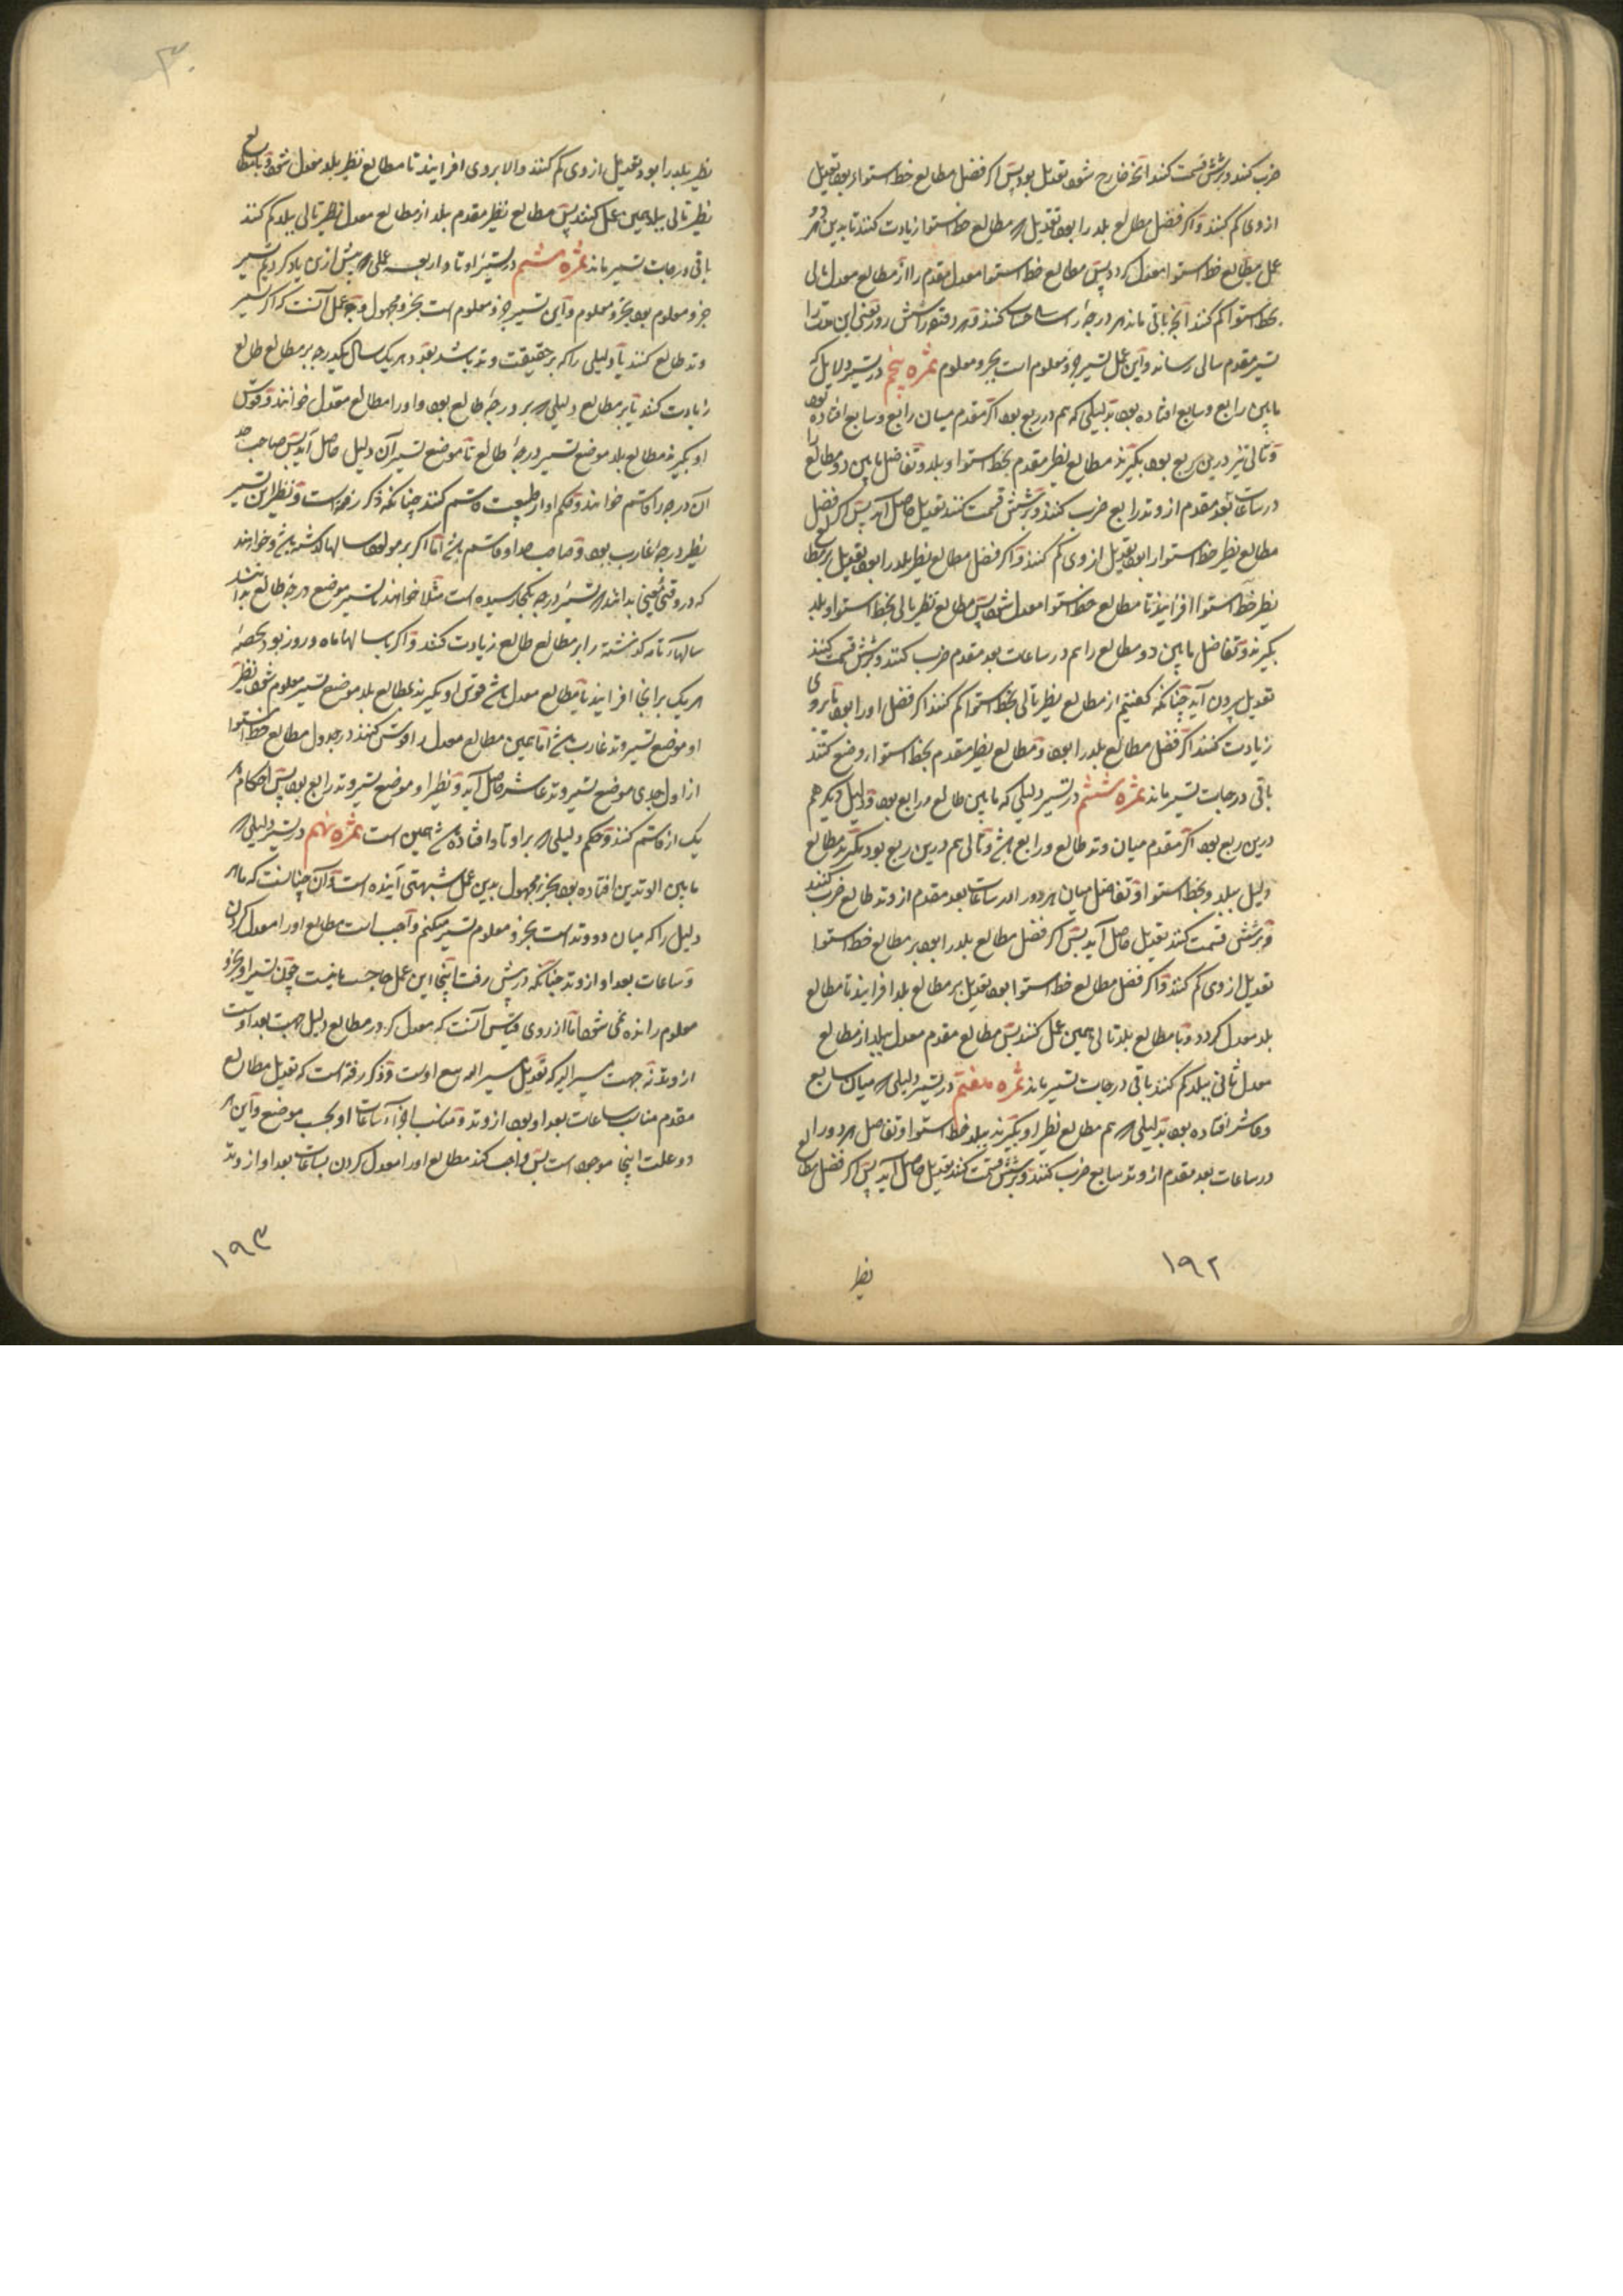 ضرب کنند و بر شش قسمت کنند آنچه خارج شود تعدیل بود پس اگر فضل مطالع خط استوا را بود تعدیل
ازوی کم کنند و اگر فضل مطالع بلد را بود تعدیل بر مطالع خط استوا زیادت کنند تا بدین
عمل مطالع خط استوا معدل گردد پس مطالع خط استوا معدل مقدم را از مطالع معدل تالی
بخط استوا کم کنند آنچه باقی ماند هر درجه را سالی حساب کنند و هر دقیقه را شش روز یعنی این مدت را
تسییر مقدم بتالی رساند و این عمل تسییر جزو معلوم است بجزو معلوم ثمره پنجم در تسییر دلایل که
مابین رابع و سابع افتاده بود بدلیلی که هم در ربع بود اگر مقدم میان رابع و سابع افتاده بود
و تالی نیز درین ربع بود بگیرند مطالع نظیر مقدم بخط استوا و بلد و تفاضل مابین دو مطالع را
در ساعات بعد مقدم از وتد رابع ضرب کنند و بر شش قسمت کنند تعدیل حاصل آید پس اگر فضل
مطالع نظیر خط استوا را بود تعدیل ازوی کم کنند و اگر فضل مطالع نظیر بلد را بود تعدیل بر مطالع
نظیر خط استوا افزایند تا مطالع خط استوا معدل شود پس مطالع نظیر تالی بخط استوا و بلد
بگیرند و تفاضل مابین دو مطالع را هم در ساعات بعد مقدم ضرب کنند و بر شش قسمت کنند
تعدیل بیرون آید چنانکه گفتیم از مطالع نظیر تالی بخط استوا کم کنند اگر فضل او را بود تا بروی
زیادت کنند اگر فضل مطالع بلد را بود و مطالع نظیر مقدم بخط استوا ازو وضع کنند
باقی درجات تسییر ماند ثمره ششم در تسییر دلیلی که مابین طالع و رابع بود و دلیل دیگر هم
درین ربع بود اگر مقدم میان وتد طالع و رابع باشد و تالی هم درین ربع بود بگیرند مطالع
دلیل ببلد و بخط استوا و تفاضل میان هر دو را در ساعات بعد مقدم از وتد طالع ضرب کنند
و بر شش قسمت کنند تعدیل حاصل آید پس اگر فضل مطالع بلد را بود بر مطالع خط استوا
تعدیل ازوی کم کنند و اگر فضل مطالع خط استوا بود تعدیل بر مطالع بلد افزایند تا مطالع
بلد معدل گردد و با مطالع بلد تالی همین عمل کنند پس مطالع مقدم معدل ببلد از مطالع
معدل ثانی ببلد کم کنند باقی درجات تسییر ماند ثمره هفتم در تسییر دلیلی که میان سابع
و عاشر افتاده بود بدلیلی که هم مطالع نظیر او بگیرند ببلد و خط استوا و تفاضل هر دو را
در ساعات بعد مقدم از وتد سابع ضرب کنند و بر شش قسمت کنند تعدیل حاصل آید پس اگر فضل مطالع
نظیر
۱۹۲
نظیر بلد را بود تعدیل ازوی کم کنند والا بروی افزایند تا مطالع نظیر بلد معدل شود و با مطالع
نظیر تالی ببلد همین عمل کنند پس مطالع نظیر مقدم بلد از مطالع معدل نظیر تالی ببلد کم کنند
باقی درجات تسییر ماند ثمره هشتم در تسییر اوتاد اربعه عملی که پیش ازین یاد کردیم تسییر
جزو معلوم بود بجزو معلوم و این تسییر جزو معلوم است بجزو مجهول و وجه عمل آنست که اگر تسییر
وتد طالع کنند یا دلیلی را که بر حقیقت وتد باشد بعدد هر یک سال یکدرجه بر مطالع طالع
زیادت کنند یا بر مطالع دلیلی که بر درجهٔ طالع بود و او را مطالع معدل خوانند و قوس
او بگیرند مطالع بلد موضع تسییر درجهٔ طالع تا موضع تسییر آن دلیل حاصل آید پس صاحب حد
آن درجه را قاسم خوانند و حکم او از طبیعت قاسم کنند چنانکه ذکر رفته است و نظیر این تسییر
نظیر درجهٔ غارب بود و صاحب حد او قاسم باشد اما اگر بر مولود سالها گذشته باشد و خواهند
که در وقتی معین بدانند که تسییر درجه بکجا رسیده است مثلا خواهند تسییر موضع درجهٔ طالع بدانند
سالهاء تامه گذشته را بر مطالع طالع زیادت کنند و اگر با سالها ماه و روز بود بحصهٔ
هر یک بر آنجا افزایند تا مطالع معدل باشد قوس او بگیرند بمطالع بلد موضع تسییر معلوم شود و نظیر
او موضع تسییر وتد غارب باشد اما همین مطالع معدل را قوس کنند در جدول مطالع خط استوا
از اول جدی موضع تسییر وتد عاشر حاصل آید و نظیر او موضع تسییر وتد رابع بود پس احکام هر
یک از قاسم کنند و حکم دلیلی که بر اوتاد افتاده باشد همین است ثمره نهم در تسییر دلیلی که
مابین الوتدین افتاده بود بجزو مجهول بدین عمل شبهتی آینده است و آن چنانست که ما هر
دلیل را که میان دو وتد است بجزو معلوم تسییر میکنیم واجب است مطالع او را معدل کردن
و ساعات بعد او از وتد چنانکه در پیش رفت اینجا این عمل حاجت نیست چون تسییر او بجزو
معلوم رانده نمی شود اما از روی قیاس آنست که معدل کردن مطالع دلیل جهت بعد اوست
از وتد نه جهت تسییر الیه که تعدیل تسییر الیه تبع اوست و ذکر رفته است که تعدیل مطالع
مقدم مناسب ساعات بعد او بود از وتد و مناسب اجزاء ساعات او بحسب موضع و این هر
دو علت اینجا موجود است پس واجب کند مطالع او را معدل کردن بساعات بعد او از وتد
۱۹۳